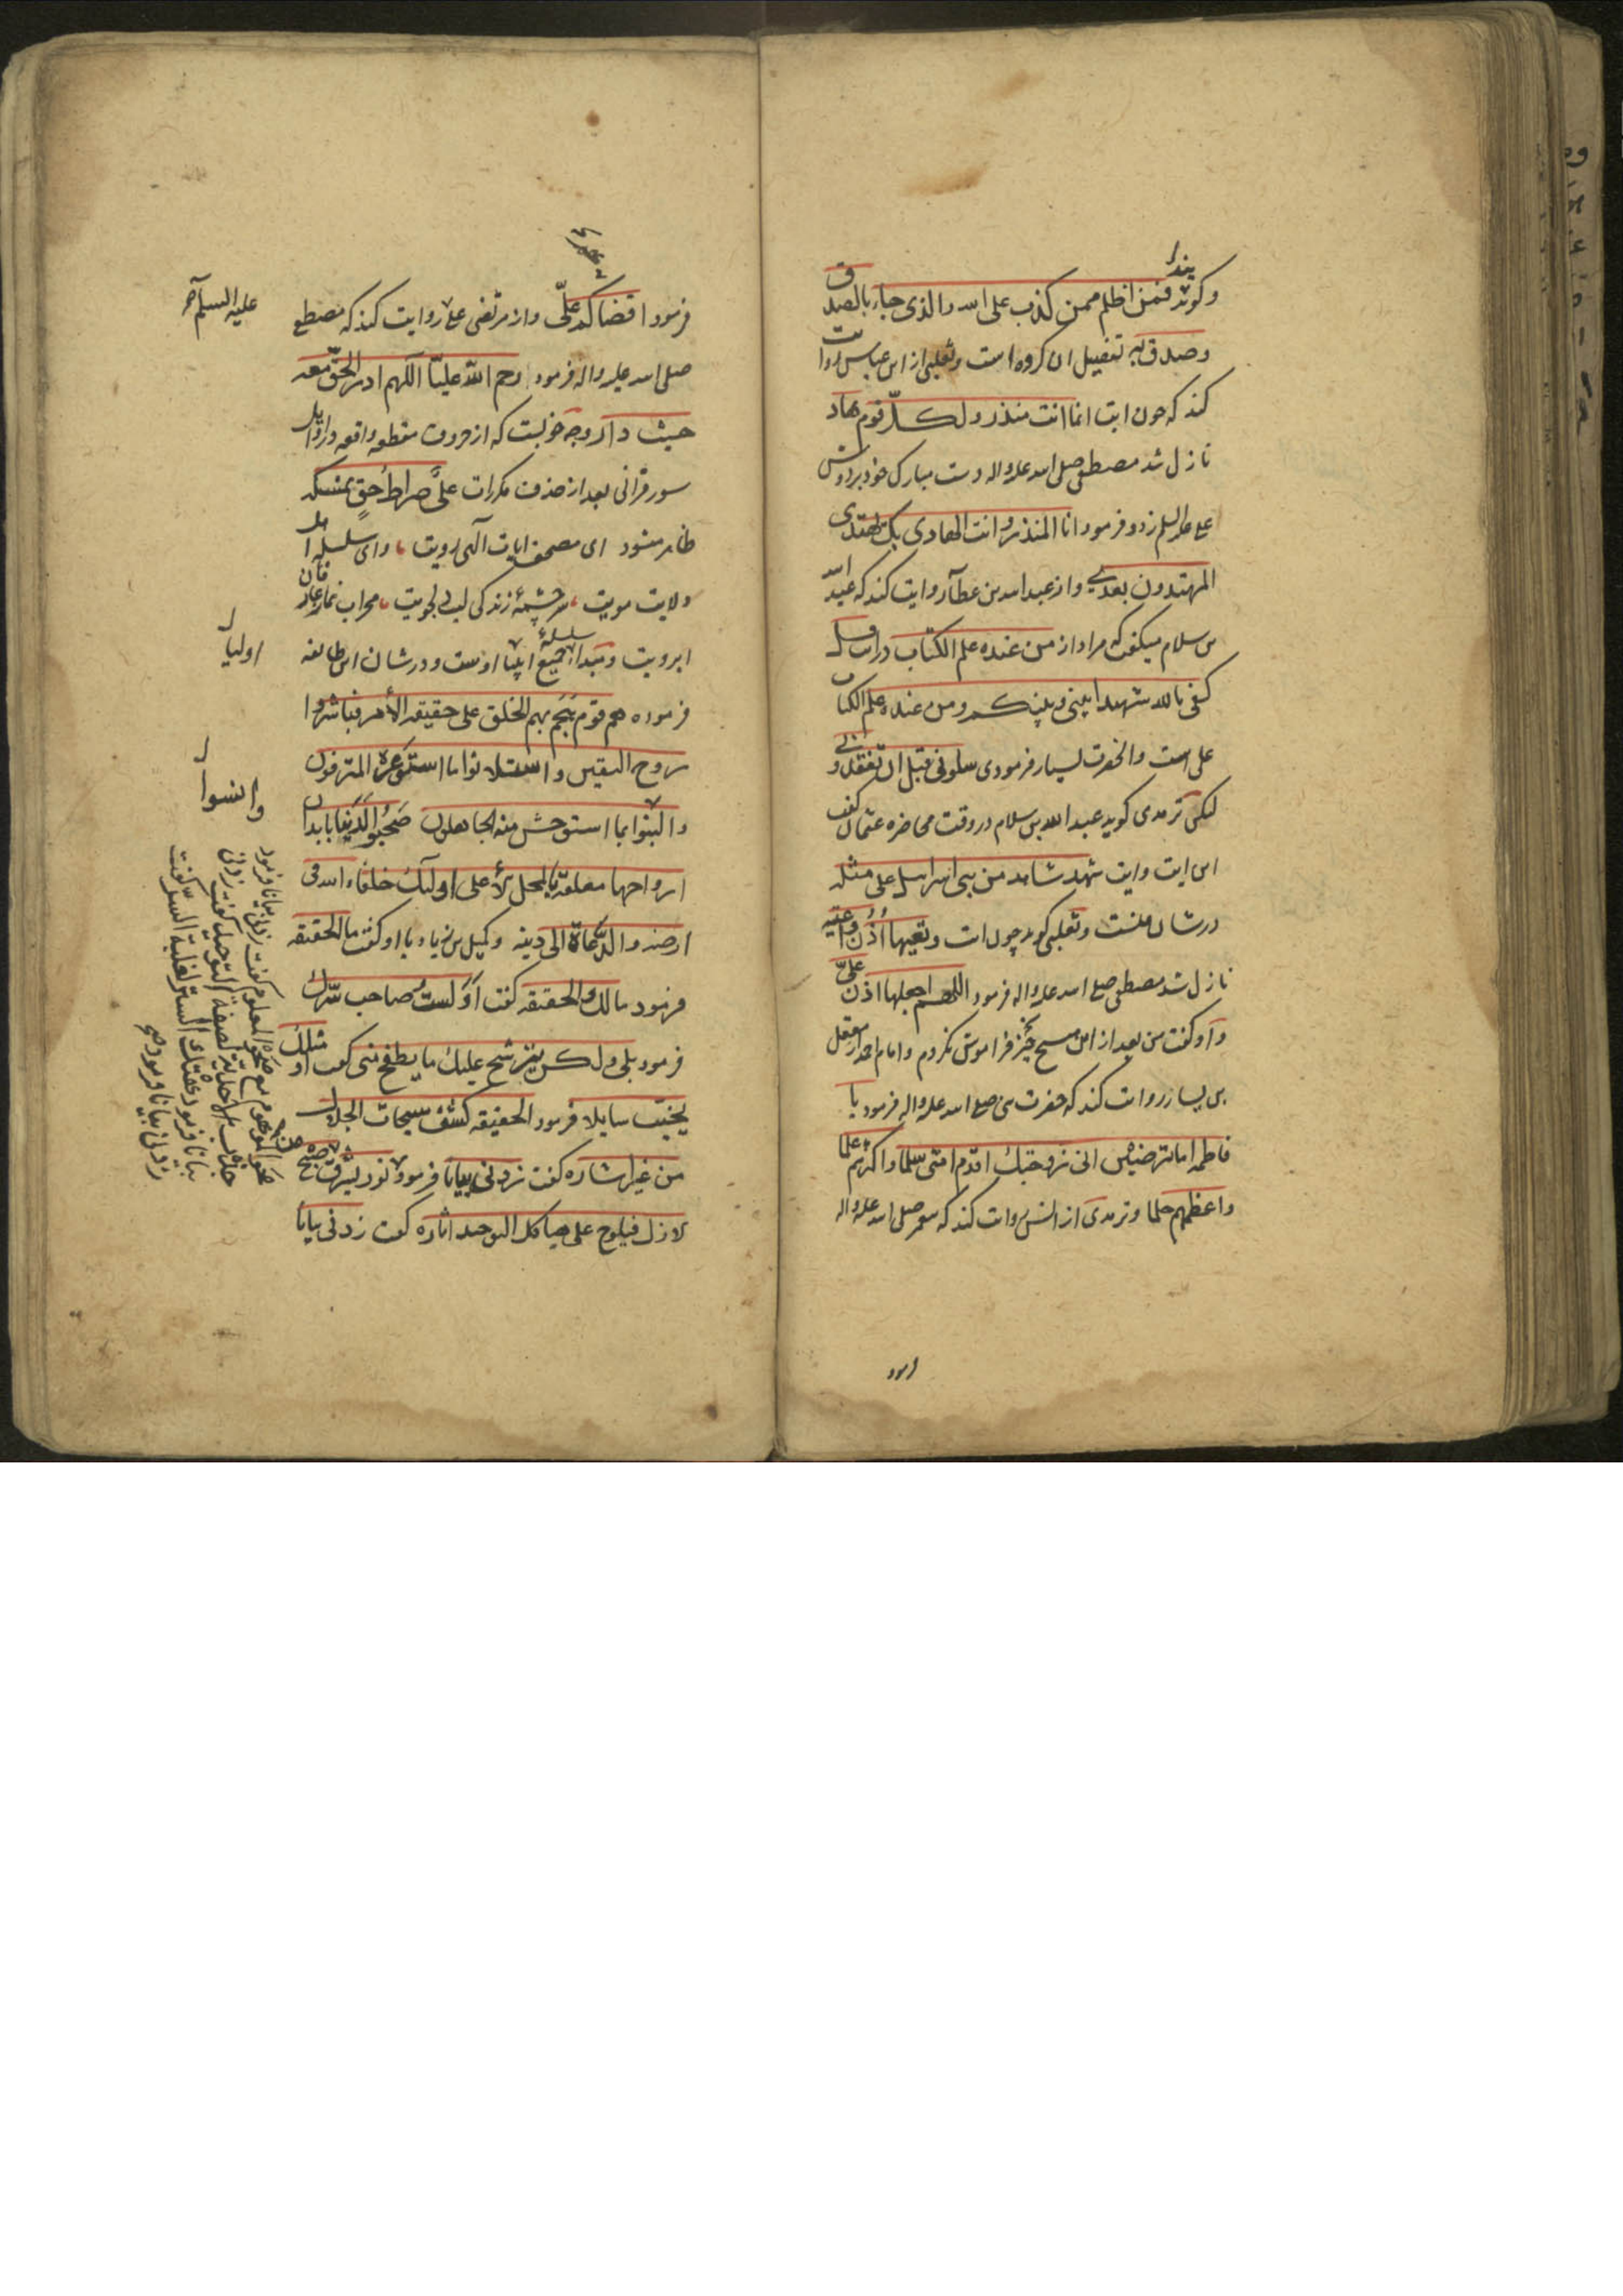 وکویند فمن اظلم ممن کذب علی الله والذی جاء بالصدق
وصدق به تفصیل این کروه است وثعلبی از ابن عباس روایت
کند که چون ایت انما انت منذر ولکل قوم هاد
نازل شد مصطفی صلی الله علیه واله دست مبارک خود بر دوش
علی علیه السلم زد و فرمود انا المنذر وانت الهادی بک یهتدی
المهتدون بعدی واز عبد الله بن عطا روایت کند که عبد الله
بن سلام میکفت که مراد از من عنده علم الکتاب در ایت قل
کفی بالله شهیدا بینی وبینکم ومن عنده علم الکتاب
علی است وانحضرت بسیار فرمودی سلونی قبل ان تفقدونی
لیکن ترمدی کوید عبد الله بن سلام در وقت محاضره عثمان کفت
این ایت وایت شهد شاهد من بنی اسراییل علی مثله
در شان منست وثعلبی کوید چون ایت وتعیها اذن واعیه
نازل شد مصطفی صلی الله علیه واله فرمود اللهم اجعلها اذن علی
واو کفت من بعد از این هیچ چیز فراموش نکردم وامام احمد از معقل
بن یسار روایت کند که حضرت نبی صلی الله علیه واله فرمود یا
فاطمه اما ترضین انی زوجتک اقدم امتی سلما واکثرهم علما
واعظمهم حلما وترمدی از انس روایت کند که پیغمبر صلی الله علیه واله
فرمود
فرمود اقضاکم علی واز مرتضی علی روایت کند که مصطفی
علیه السلم
صلی الله علیه واله فرمود رحم الله علیا اللهم ادر الحق معه
حیث دار وجه خوبست که از حروف مقطعه واقعه در اوایل
سور قرانی بعد از حذف مکررات علی صراط حق نمسکه
ظاهر میشود ای مصحف ایات الهی رویت وای سلسله اهل
ولایت مویت سرچشمهٔ زندکی لب دلجویت محراب نماز عارفان
ابرویت ومبدا جمیع سلسلهٔ اولیا اوست ودر شان این طایفه
اولیا
فرموده هم قوم هجم بهم الخلق علی حقیقة الأمر فباشروا
روح الیقین واستلانوا ما استوعره المترفون
وانسوا
والبنوا بما استوحش منه الجاهلون صحبوا الدنیا بابدان
ارواحها معلقة بالمحل الأعلی اولیک خلفاء الله فی
ارضه والدعاة الی دینه وکمیل بن زیاد با او کفت ما الحقیقه
فرمود مالک والحقیقه کفت اولست صاحب سرک
فرمود بلی ولکن یترشح علیک ما یطفح منی کفت او مثلک
یخیب سایلا فرمود الحقیقه کشف سبحات الجلال
من غیر اشاره کفت زدنی بیانا فرمود نور یشرق من صبح
الازل فیلوح علی هیاکل التوحید اثاره کفت زدنی بیانا
بیانا فرمود محو الموهوم مع صحو المعلوم کفت زدنی
جذب الاحدیة لصفة التوحید کفت زدنی
بیانا فرمود هتک الستر لغلبة السر کفت
زدنی بیانا فرمود صح